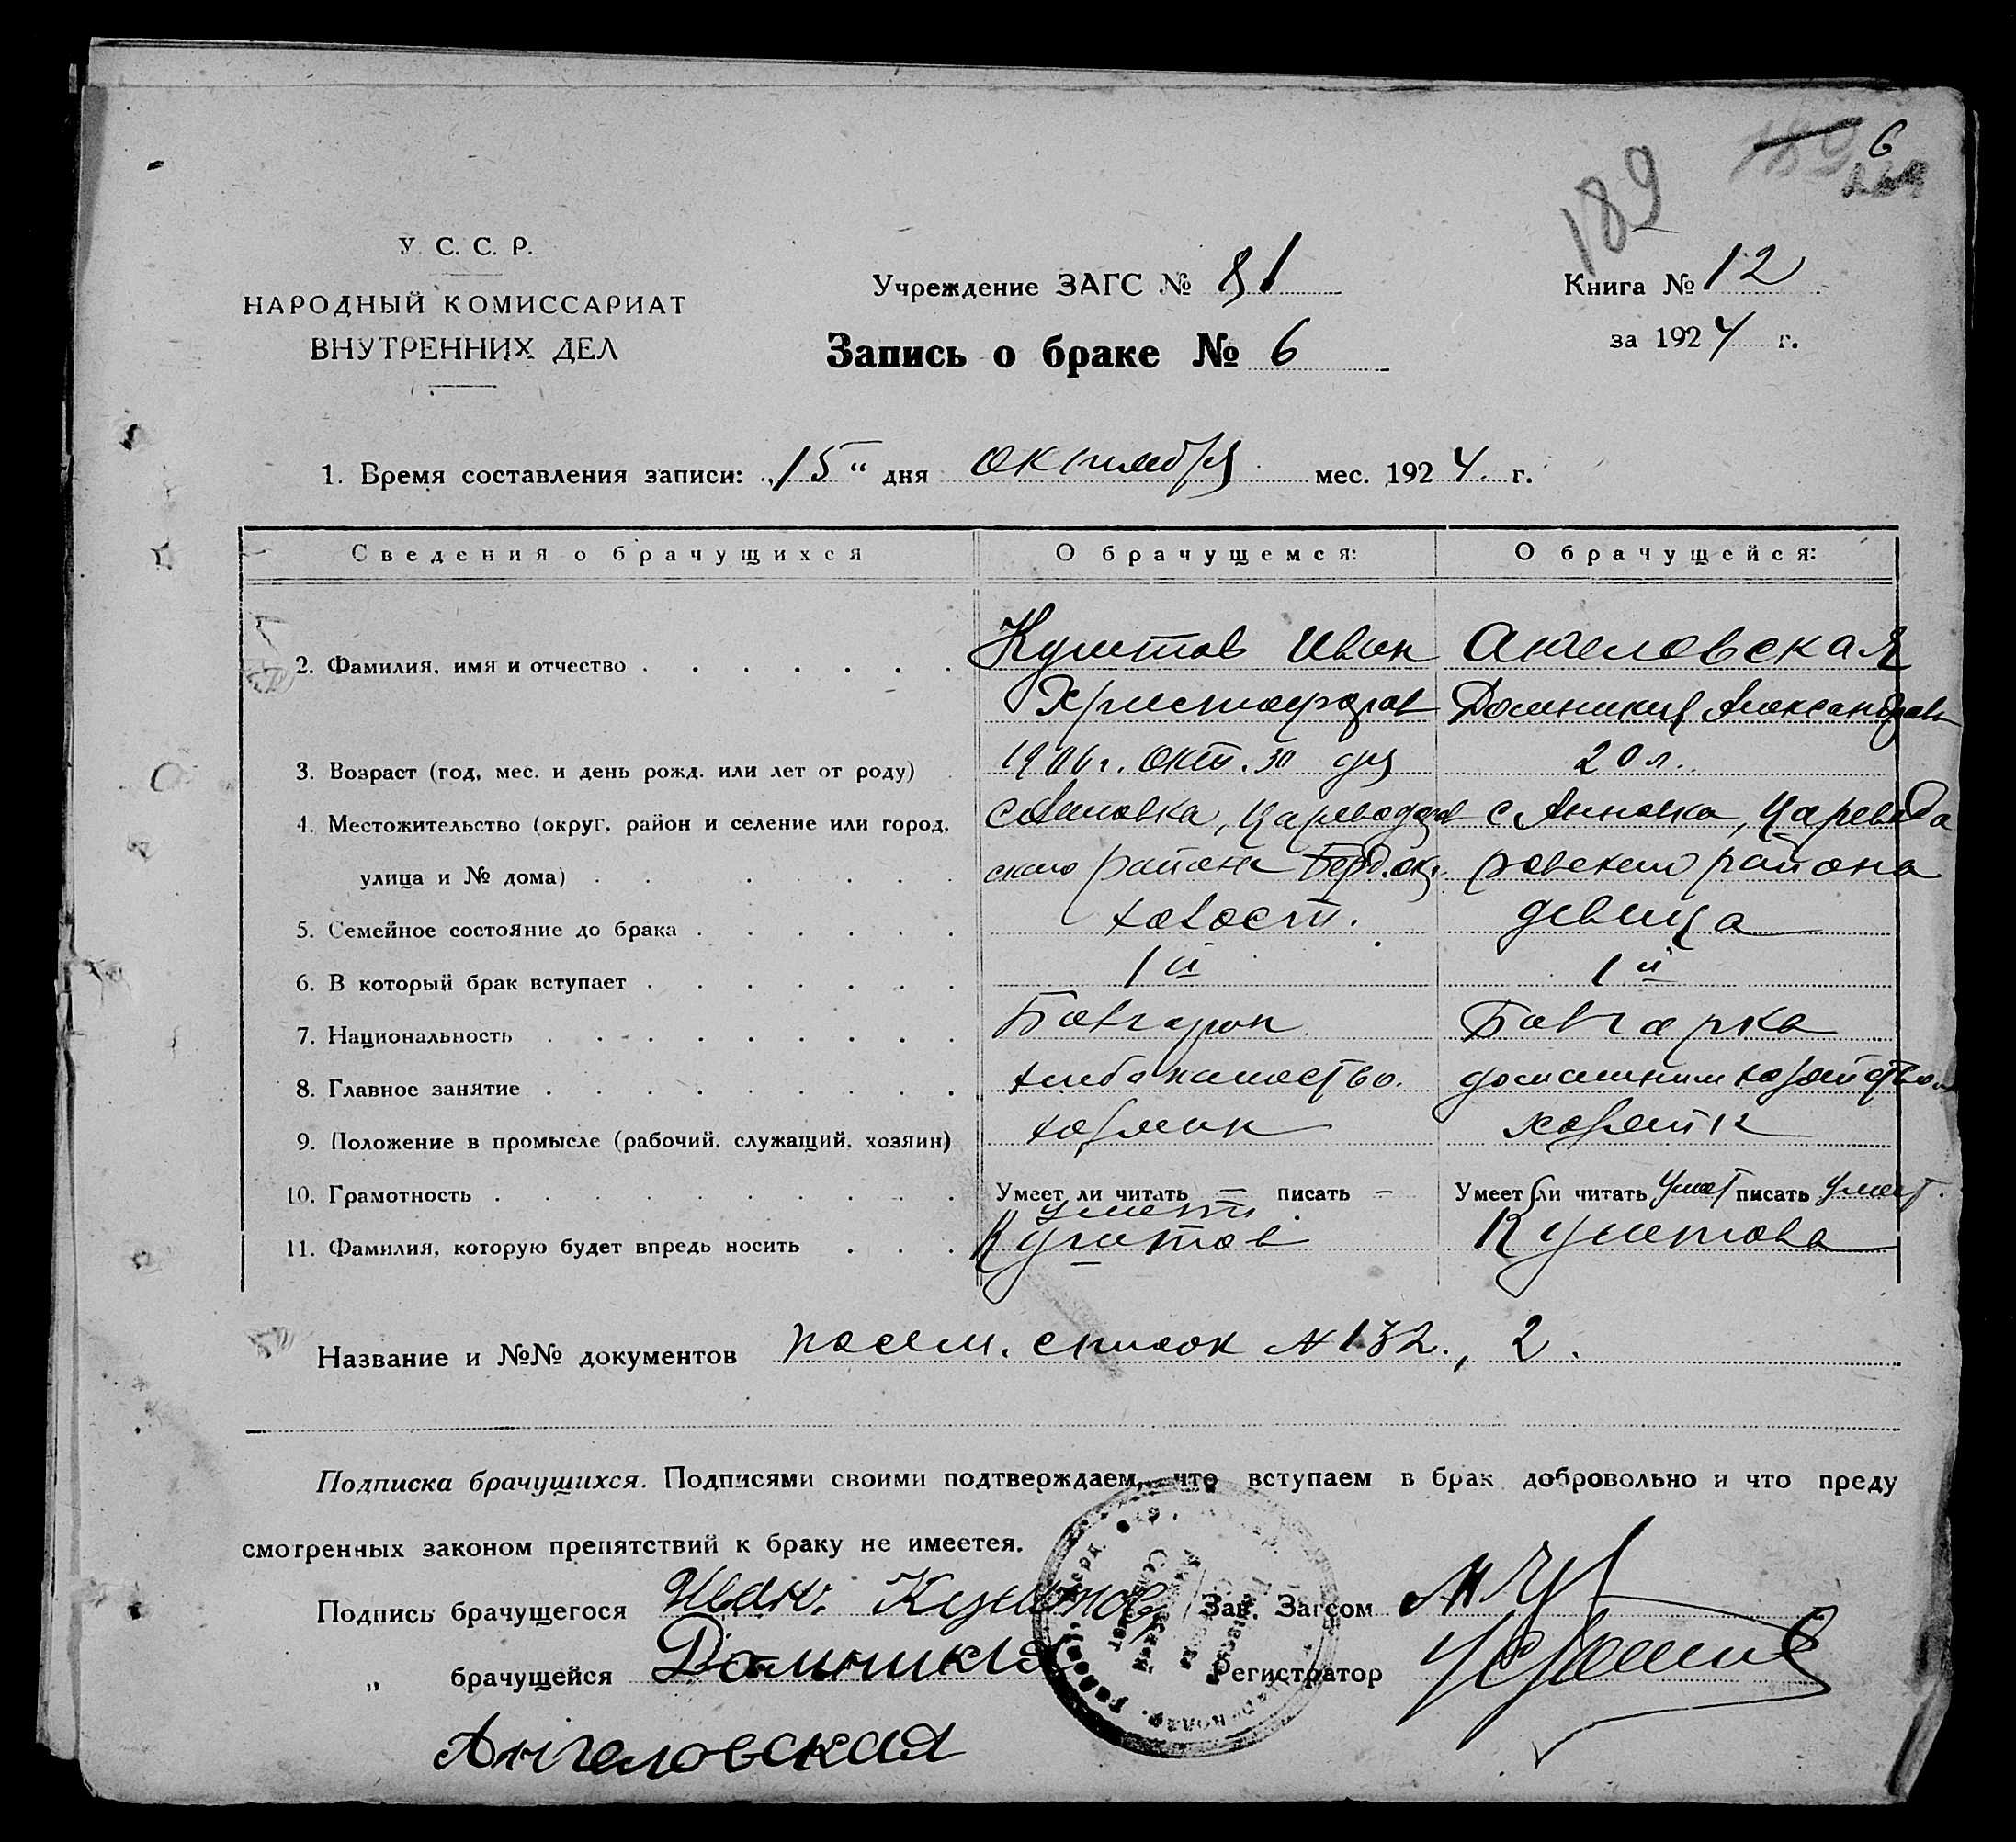 189 6
189
У. С. С. Р.
НАРОДНЫЙ КОМИССАРИАТ
ВНУТРЕННИХ ДЕЛ
Учреждение ЗАГС № 81
Книга № 12
Запись о браке № 6
за 1924 г.
1. Время составления записи: „15“ дня октября мес. 1924 г.
Сведения о брачущихся О брачущемся: О брачущейся:
2. Фамилия, имя и отчество Иван Ангеловская
Христофоров Домникия Александров
3. Возраст (год, мес. и день рожд. или лет от роду) 1906 г. окт. 30 дня 20 л.
4. Местожительство (округ, район и селение или город, с Анновка, Цареводаров с Анновка, Царевода
улица и № дома) ского района Берд. окр. ровского района
5. Семейное состояние до брака холост. девица
6. В который брак вступает 1й 1й
7. Национальность Болгарин Болгарка
8. Главное занятие хлебопашество. домашним хозяйством
9. Положение в промысле (рабочий, служащий, хозяин) хозяин
10. Грамотность Умеет ли читать — писать — Умеет ли читать умеет писать умеет.
умеет
11. Фамилия, которую будет впредь носить
Название и №№ документов посем. список № 132., 2.
Подписка брачущихся. Подписями своими подтверждаем, что вступаем в брак добровольно и что преду
смотренных законом препятствий к браку не имеется.
Подпись брачущегося Иван. Зав. Загсом
„ брачущейся Домникия Регистратор
Ангеловская